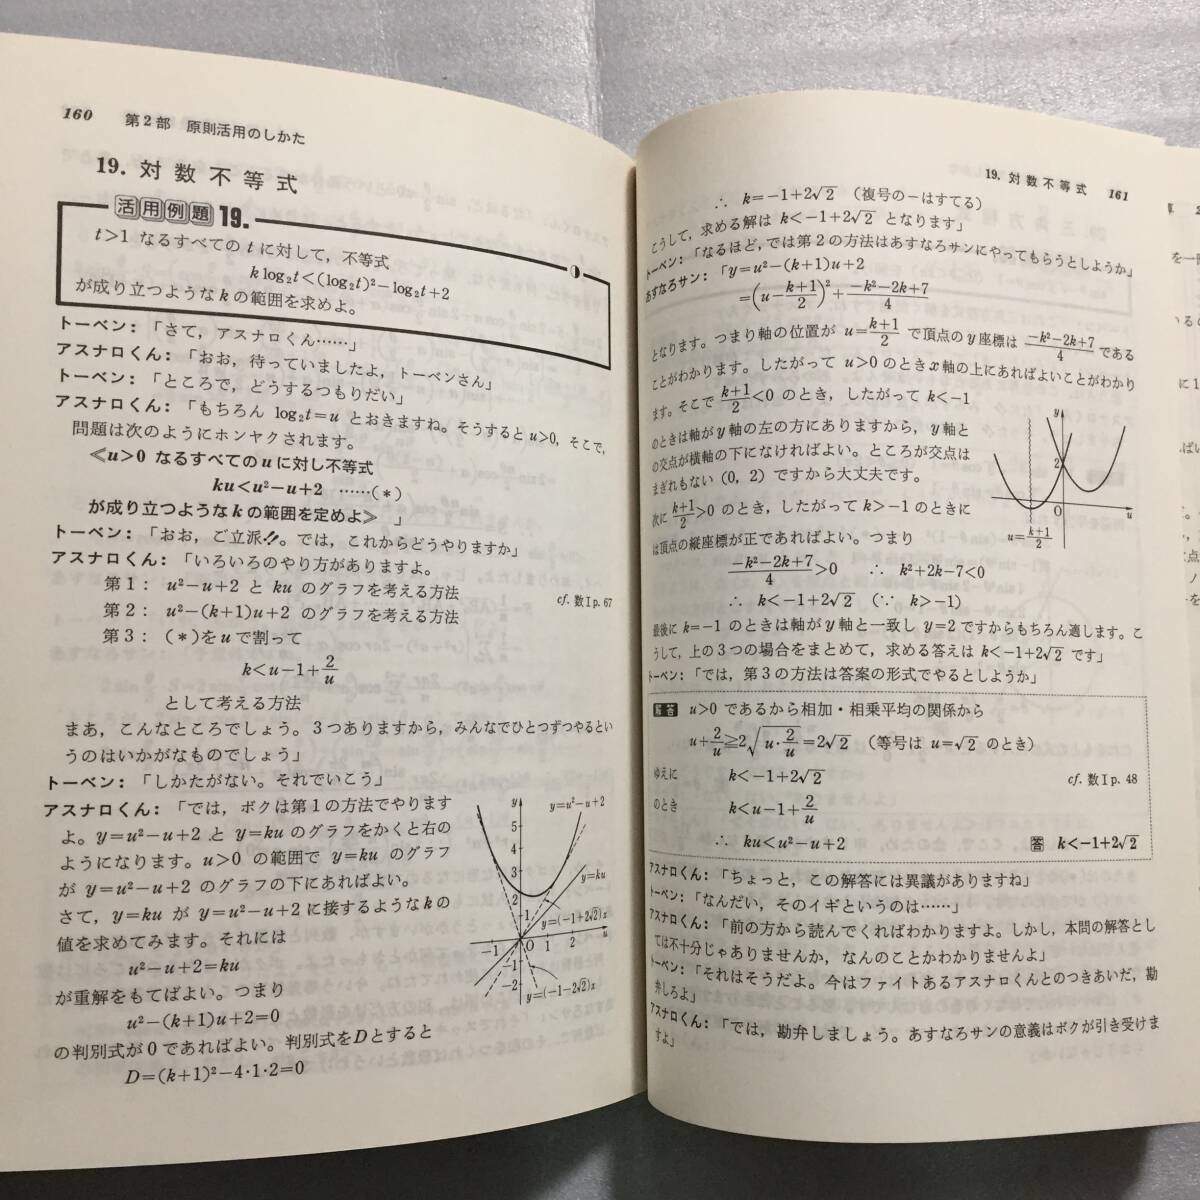 160 第2部 原則活用のしかた
19. 対数不等式
活用例題 19.
t>1 なるすべての t に対して，不等式
k log₂t<(log₂t)²−log₂t+2
が成り立つような k の範囲を求めよ。
トーベン：「さて，アスナロくん……」
アスナロくん：「おお，待っていましたよ，トーベンさん」
トーベン：「ところで，どうするつもりだい」
アスナロくん：「もちろん log₂t=u とおきますね。そうすると u>0，そこで，
問題は次のようにホンヤクされます。
≪u>0 なるすべての u に対し不等式
ku<u²−u+2 ……(*)
が成り立つような k の範囲を定めよ≫ 」
トーベン：「おお，ご立派!!。では，これからどうやりますか」
アスナロくん：「いろいろのやり方がありますよ。
第1： u²−u+2 と ku のグラフを考える方法 cf. 数I p. 67
第2： u²−(k+1)u+2 のグラフを考える方法
第3： (*)を u で割って
k<u−1+2/u
として考える方法
まあ，こんなところでしょう。3つありますから，みんなでひとつずつやるとい
うのはいかがなものでしょう」
トーベン：「しかたがない。それでいこう」
アスナロくん：「では，ボクは第1の方法でやります
よ。y=u²−u+2 と y=ku のグラフをかくと右の
ようになります。u>0 の範囲で y=ku のグラフ
が y=u²−u+2 のグラフの下にあればよい。
さて，y=ku が y=u²−u+2 に接するような k の
値を求めてみます。それには
u²−u+2=ku
が重解をもてばよい。つまり
u²−(k+1)u+2=0
の判別式が 0 であればよい。判別式を D とすると
D=(k+1)²−4·1·2=0
y
y=u²−u+2
5
4
3
2
1
y=ku
y=(−1+2√2)x
−2 −1 O 1 2 u
−1
−2
y=(−1−2√2)x
19. 対数不等式 161
∴ k=−1+2√2 （複号の−はすてる）
こうして，求める解は k<−1+2√2 となります」
トーベン：「なるほど，では第2の方法はあすなろサンにやってもらうとしようか」
あすなろサン：「y=u²−(k+1)u+2
=(u−(k+1)/2)²+(−k²−2k+7)/4
となります。つまり軸の位置が u=(k+1)/2 で頂点の y 座標は (−k²−2k+7)/4 である
ことがわかります。したがって u>0 のとき x 軸の上にあればよいことがわかり
ます。そこで (k+1)/2<0 のとき，したがって k<−1
のときは軸が y 軸の左の方にありますから，y 軸と
の交点が横軸の下になければよい。ところが交点は
まぎれもない (0, 2) ですから大丈夫です。
次に (k+1)/2>0 のとき，したがって k>−1 のときに
は頂点の縦座標が正であればよい。つまり
(−k²−2k+7)/4>0 ∴ k²+2k−7<0
∴ k<−1+2√2 (∵ k>−1)
y
2
O
u
u=(k+1)/2
最後に k=−1 のときは軸が y 軸と一致し y=2 ですからもちろん適します。こ
うして，上の3つの場合をまとめて，求める答えは k<−1+2√2 です」
トーベン：「では，第3の方法は答案の形式でやるとしようか」
解答 u>0 であるから相加・相乗平均の関係から
u+2/u≧2√(u·2/u)=2√2 （等号は u=√2 のとき）
ゆえに k<−1+2√2 cf. 数I p. 48
のとき k<u−1+2/u
∴ ku<u²−u+2 答 k<−1+2√2
アスナロくん：「ちょっと，この解答には異議がありますね」
トーベン：「なんだい，そのイギというのは……」
アスナロくん：「前の方から読んでくればわかりますよ。しかし，本問の解答とし
ては不十分じゃありませんか，なんのことかわかりませんよ」
トーベン：「それはそうだよ。今はファイトあるアスナロくんとのつきあいだ，勘
弁しろよ」
アスナロくん：「では，勘弁しましょう。あすなろサンの意義はボクが引き受けま
すよ」